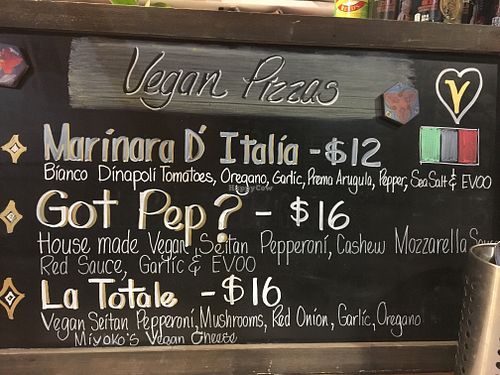 Vegan Pizzas
V
Marinara D' Italia - $12
Bianco Dinapoli Tomatoes, Oregano, Garlic, Prema Arugula, Pepper, Sea Salt & EVOO
Got Pep? - $16
House made Vegan Seitan Pepperoni, Cashew Mozzarella
Red Sauce, Garlic & EVOO
La Totale - $16
Vegan Seitan Pepperoni, Mushrooms, Red Onion, Garlic, Oregano
Miyoko's Vegan Cheese
HappyCow